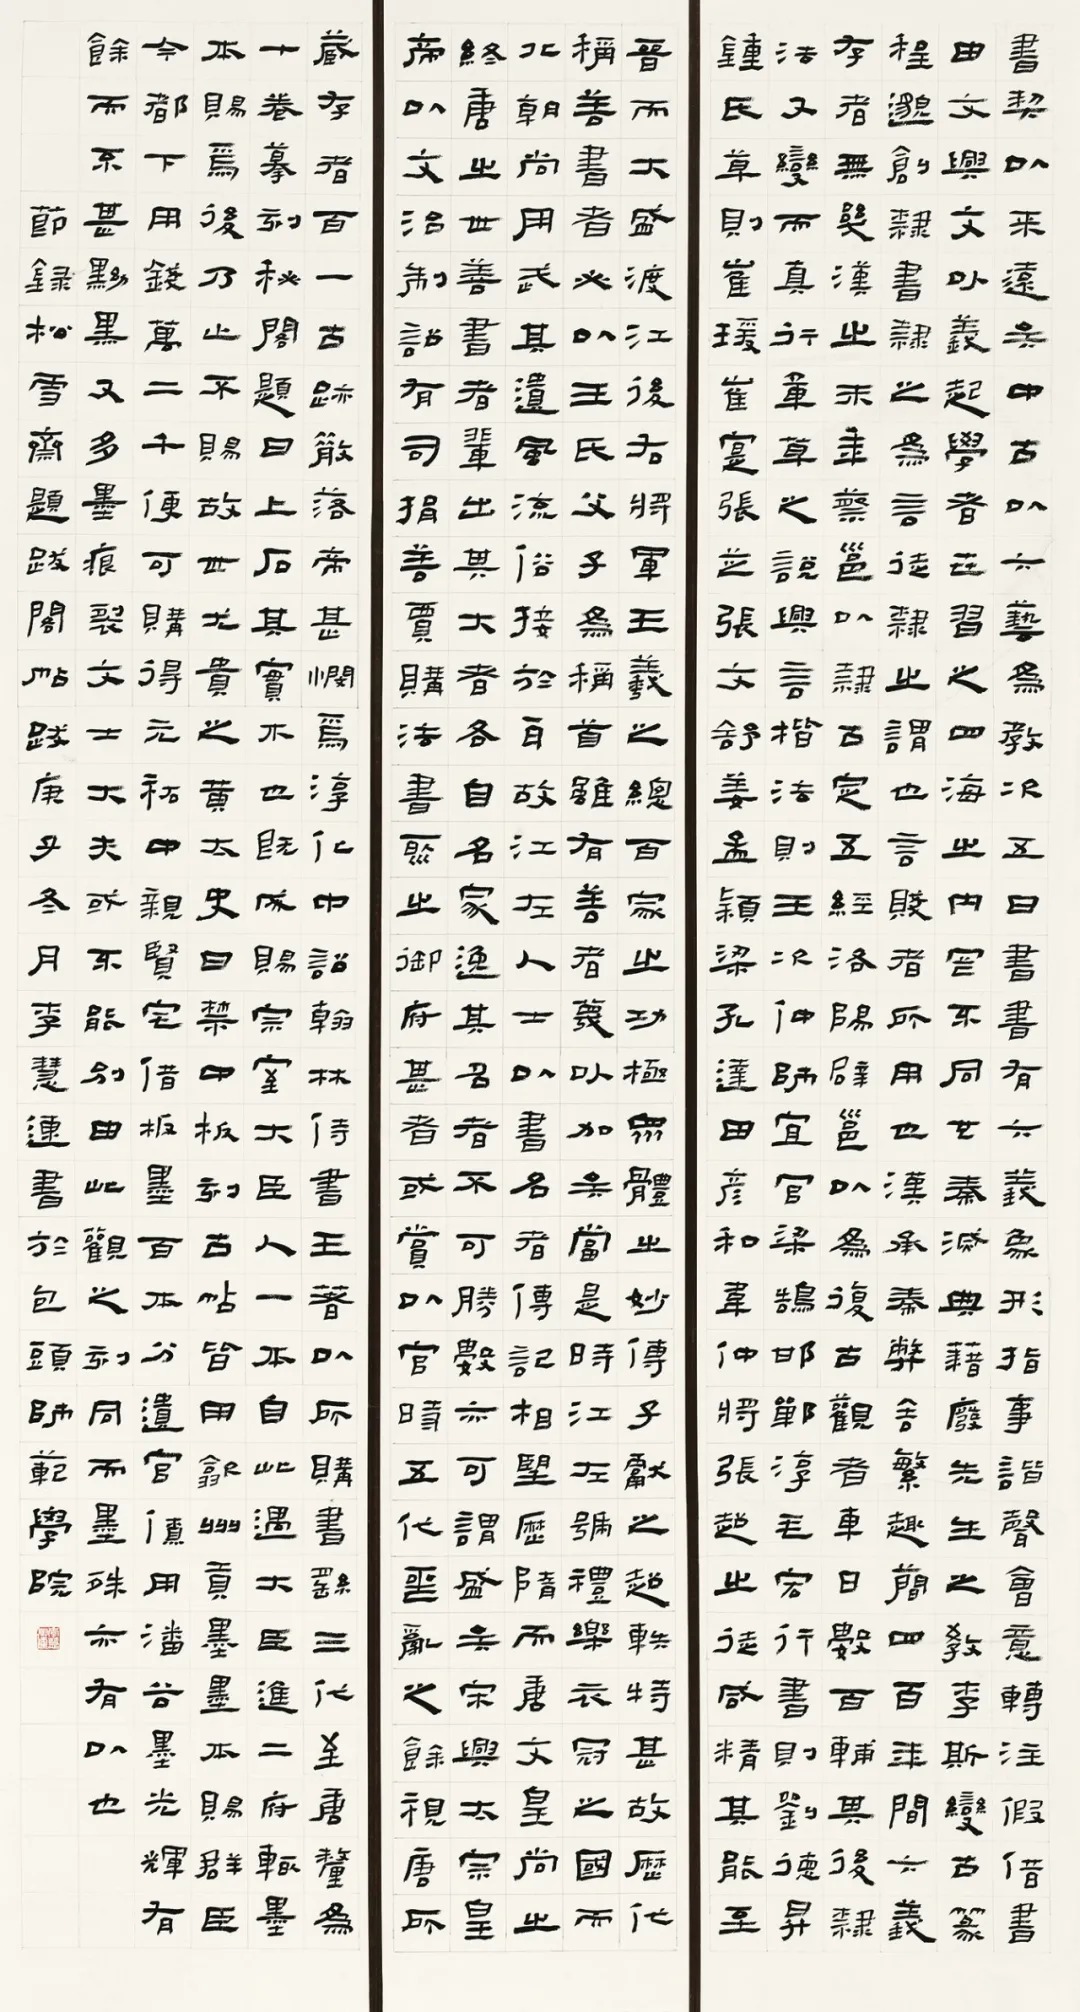 書契以来遠矣中古以六藝為教次五曰書書有六義象形指事諧聲會意轉注假借書
由文興文以義起學者世習之四海之内罔不同也秦滅典藉廢先生之教李斯變古篆
程邈創隸書隸之為言徒隸之謂也言賤者所用也漢承秦弊舍繁趣簡四百年間六義
存者無幾漢之末年蔡邕以隸古定五經洛陽辟邕以為復古觀者車日數百輔其後隸
法又變而真行章草之説興言楷法則王次仲師宜官梁鵠邯鄲淳毛宏行書則劉德昇
鍾氏草則崔瑗崔寔張芝張文舒姜孟穎梁孔達田彦和韋仲將張超之徒咸精其能至
晉而大盛渡江後右將軍王羲之總百家之功極衆體之妙傳子獻之超軼特甚故歷代
稱善書者必以王氏父子為稱首雖有善者蔑以加矣當是時江左號禮樂衣冠之國而
北朝尚用武其遺風流俗接於耳故江左人士以書名者傳記相望歷隋而唐文皇尚之
終唐之世善書者輩出其大者各自名家逸其名者不可勝數亦可謂盛矣宋興太宗皇
帝以文治制詔有司捐善賈購法書聚之御府甚者或賞以官時五代喪亂之餘視唐所
藏存者百一古跡散落帝甚憫焉淳化中詔翰林侍書王著以所購書繇三代至唐釐為
十卷摹刻秘閣題曰上石其實木也既成賜宗室大臣人一本自此遇大臣進二府輒墨
本賜焉後乃止不賜故世尤貴之黄太史曰禁中板刻古帖皆用歙州貢墨墨本賜群臣
今都下用錢萬二千便可購得元祐中親賢宅借板墨百本分遺官僚用潘谷墨光輝有
餘而不甚黟黑又多墨痕裂文士大夫或不能别由此觀之刻同而墨殊亦有以也
節録松雪齋題跋閣帖跋庚子冬月李慧連書於包頭師範學院